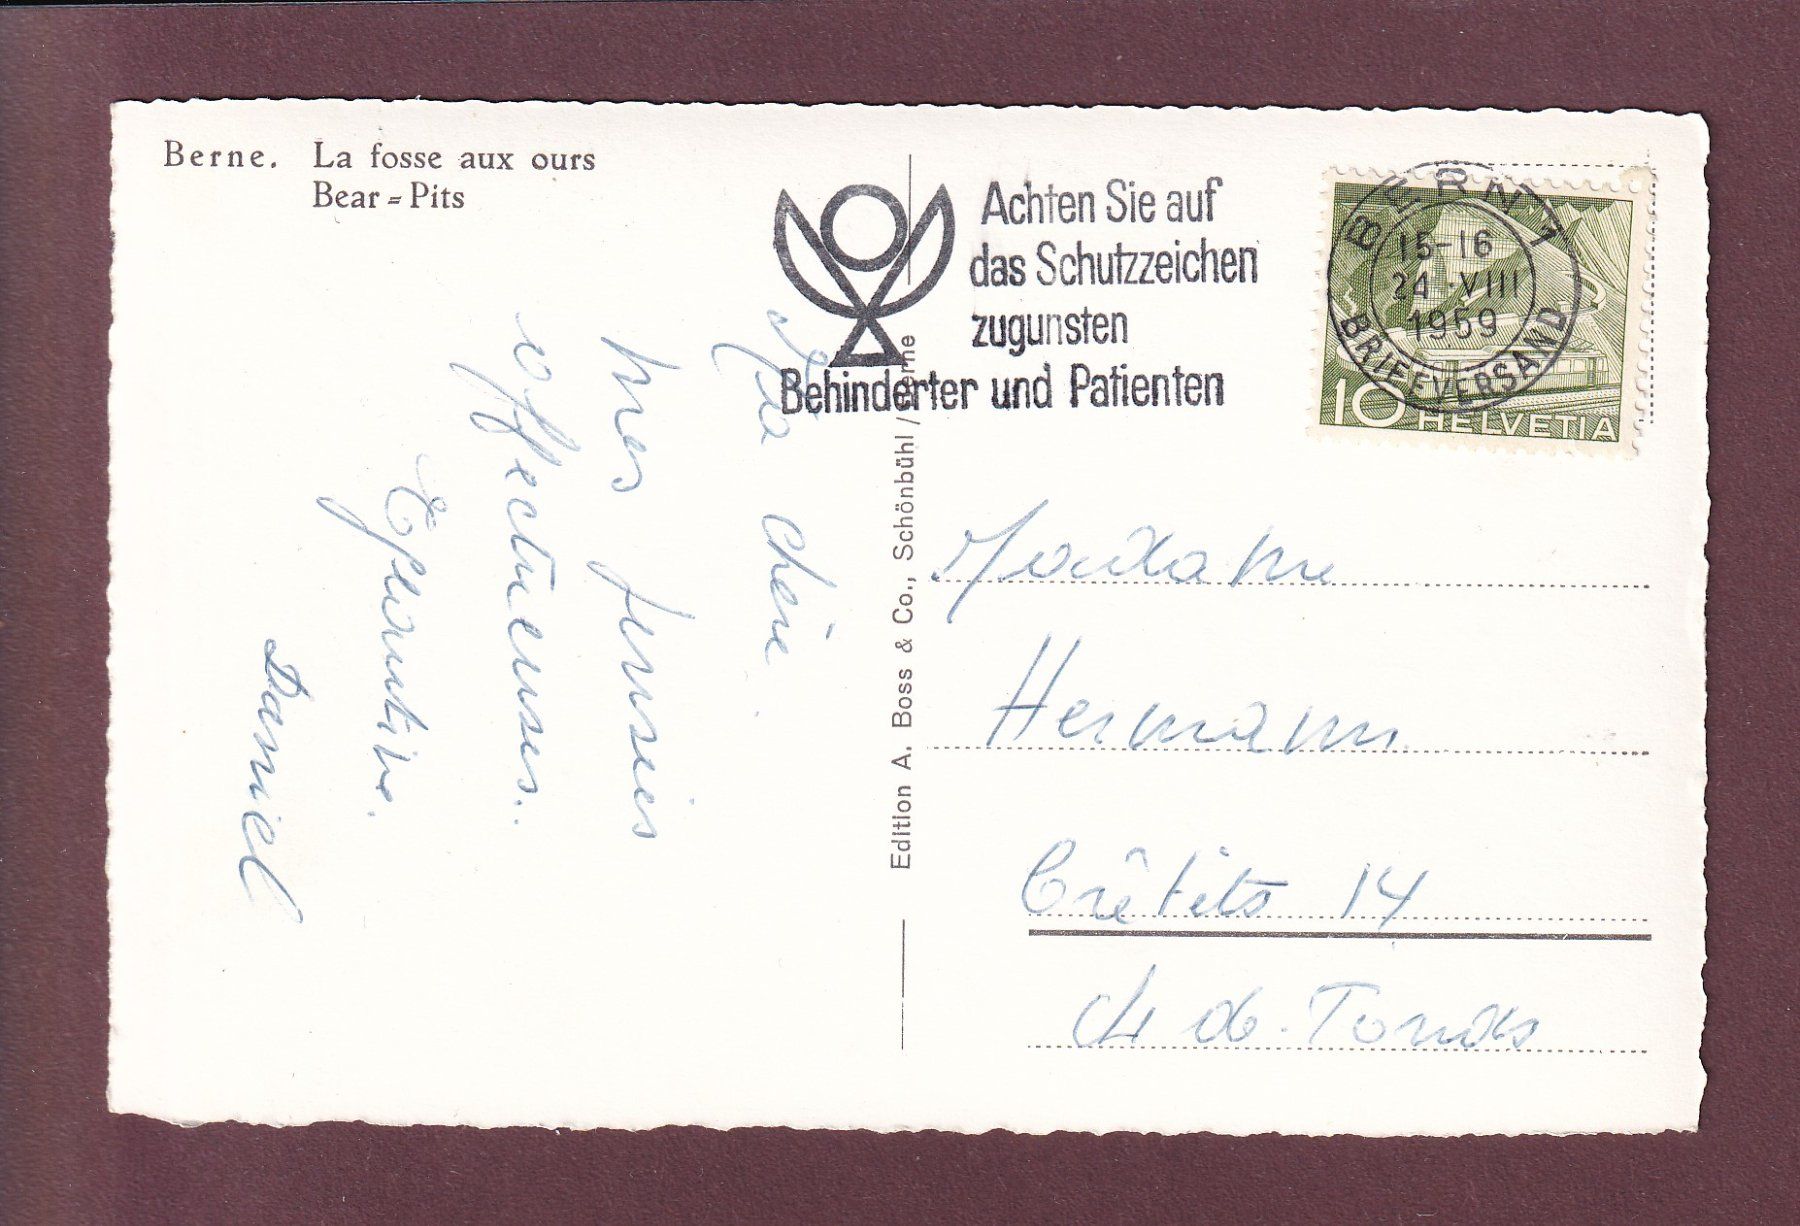 Berne. La fosse aux ours
Bear=Pits
Achten Sie auf
das Schutzzeichen
zugunsten
Behinderter und Patienten
BERN 1
15-16
24.-VIII
1959
BRIEFVERSAND
10 HELVETIA
Ma chérie
mes pensées
affectueuses.
Daniel
Edition A. Boss & Co., Schönbühl/Berne
Madame
Hermann
Crêtêts 14
Ch de-Fonds